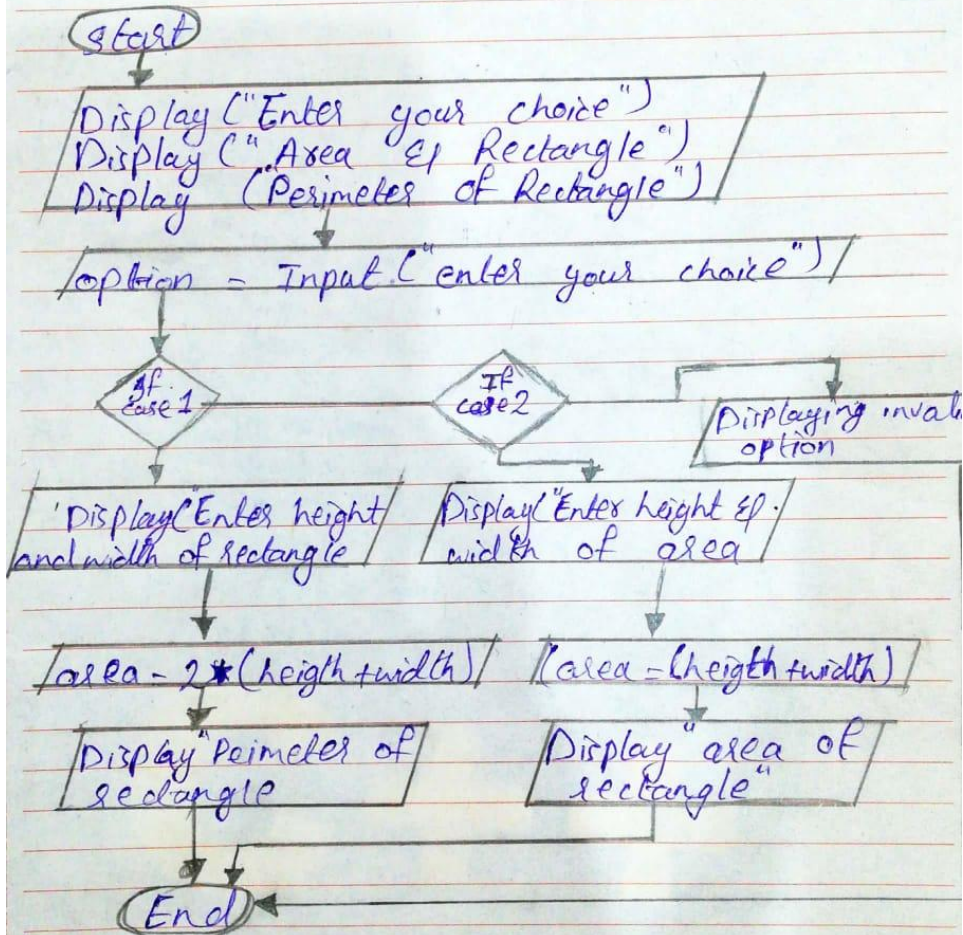 start
Display ("Enter your choice")
Display (" Area & Rectangle")
Display ("Perimeter of Rectangle")
option = Input ("enter your choice")
If
case 1
If
case 2
Displaying inval
option
Display("Enter height
and width of rectangle
Display("Enter height &
width of area
area - 2*(heigth +width)
(area = (heigth +width)
Display "Peimeter of
rectangle
Display "area of
rectangle"
End